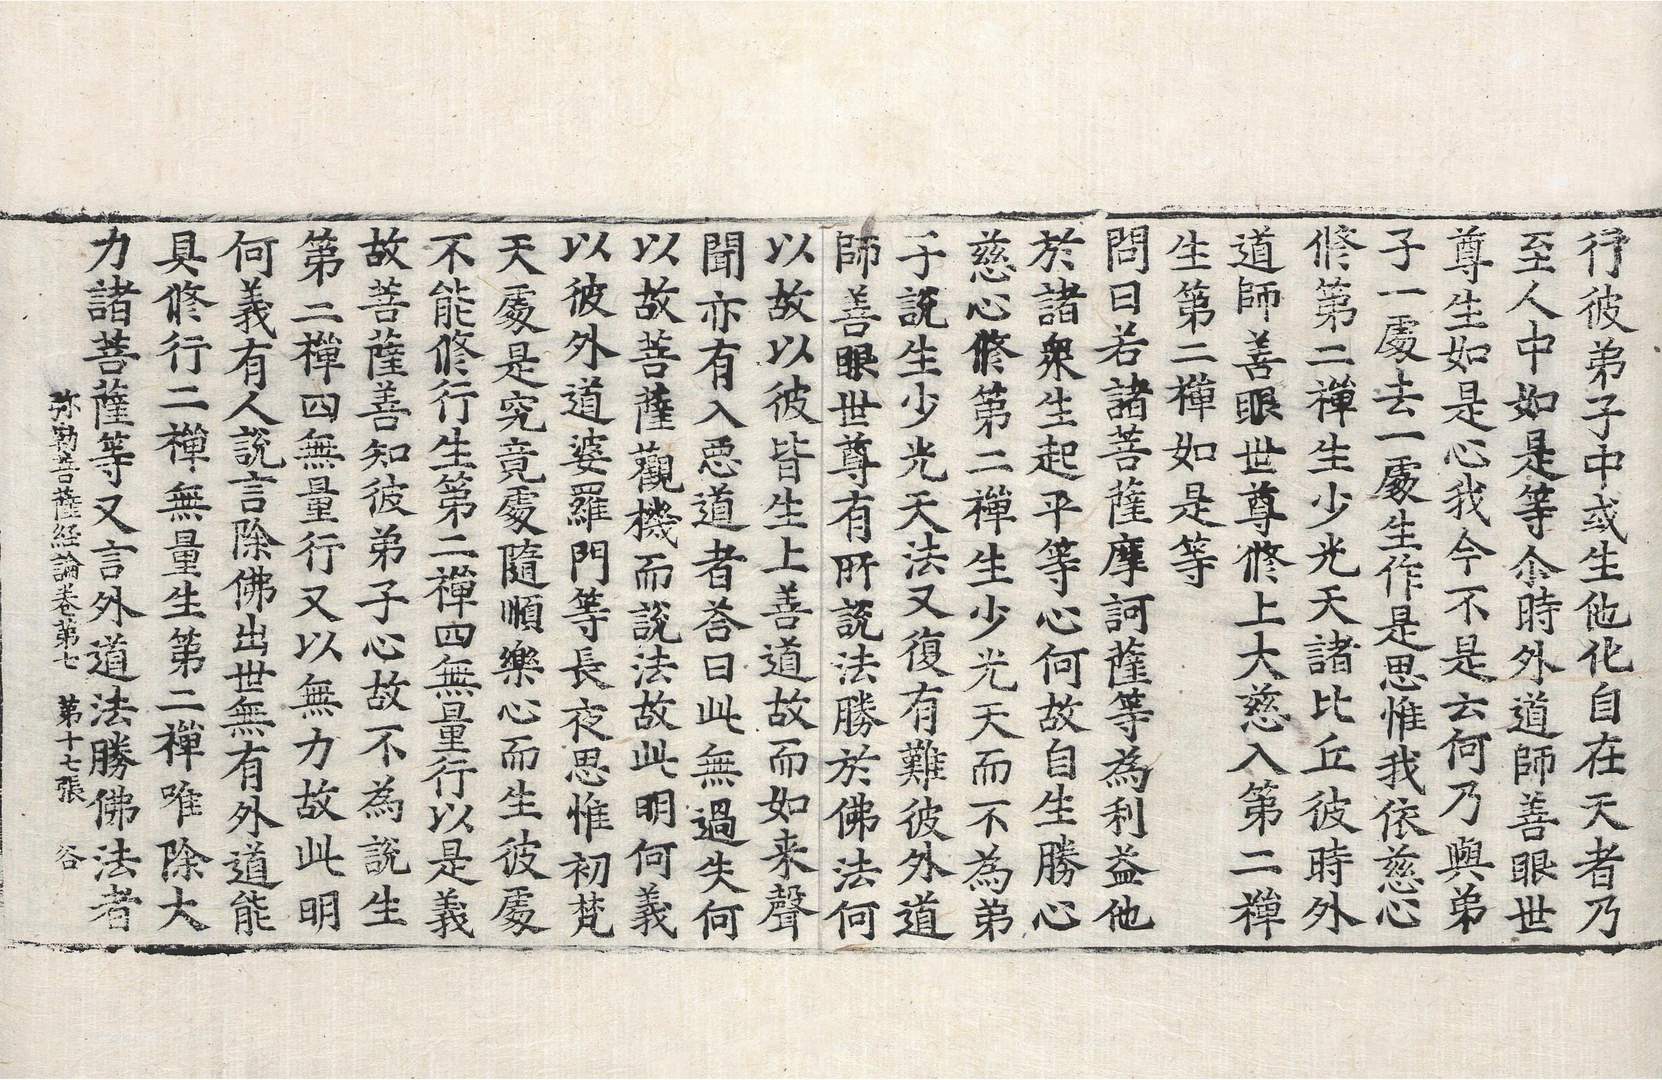 行彼弟子中或生他化自在天者乃
至人中如是等尒時外道師善眼世
尊生如是心我今不是云何乃與弟
子一處去一處生作是思惟我依慈心
修第二禪生少光天諸比丘彼時外
道師善眼世尊修上大慈入第二禪
生第二禪如是等
問曰若諸菩薩摩訶薩等為利益他
於諸衆生起平等心何故自生勝心
慈心修第二禪生少光天而不為弟
子說生少光天法又復有難彼外道
師善眼世尊有所說法勝於佛法何
以故以彼皆生上善道故而如来聲
聞亦有入惡道者荅曰此無過失何
以故菩薩觀機而說法故此明何義
以彼外道婆羅門等長夜思惟初梵
天處是究竟處隨順樂心而生彼處
不能修行生第二禪四無量行以是義
故菩薩善知彼弟子心故不為說生
第二禪四無量行又以無力故此明
何義有人說言除佛出世無有外道能
具修行二禪無量生第二禪唯除大
力諸菩薩等又言外道法勝佛法者
弥勒菩薩経論卷第七 第十七張 谷